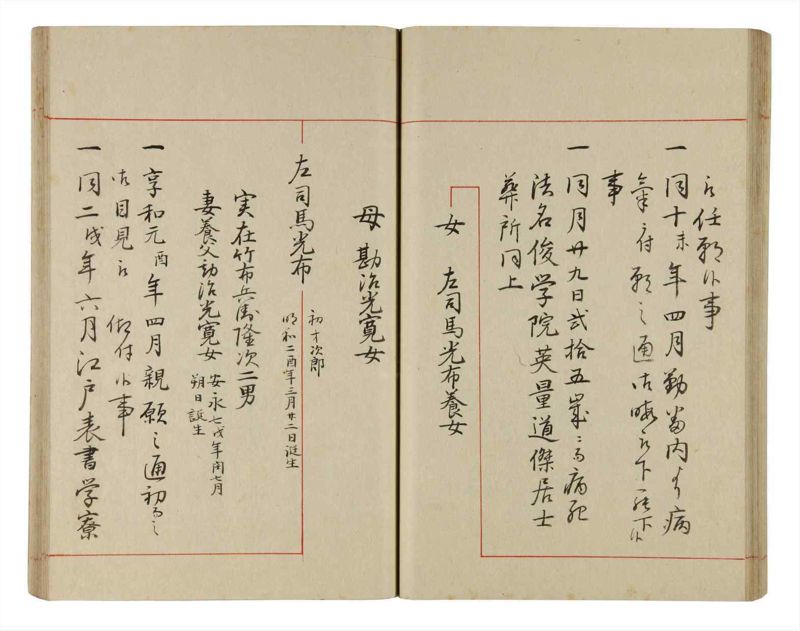 被任願候事
一 同十未年四月勤番内より病
氣ニ付願之通御暇被下罷下候
事
一 同月廿九日弐拾五歳ニ而病死
法名俊学院英量道傑居士
葬所同上
女 左司馬光布養女
母 勘治光寛女
左司馬光布
初才次郎
明和二酉年三月廿二日誕生
実在竹布兵衛隆次二男
妻養父勘治光寛女
安永七戌年閏七月
朔日誕生
一 享和元酉年四月親願之通初而之
御目見被 仰付候事
一 同二戌年六月江戸表書学寮